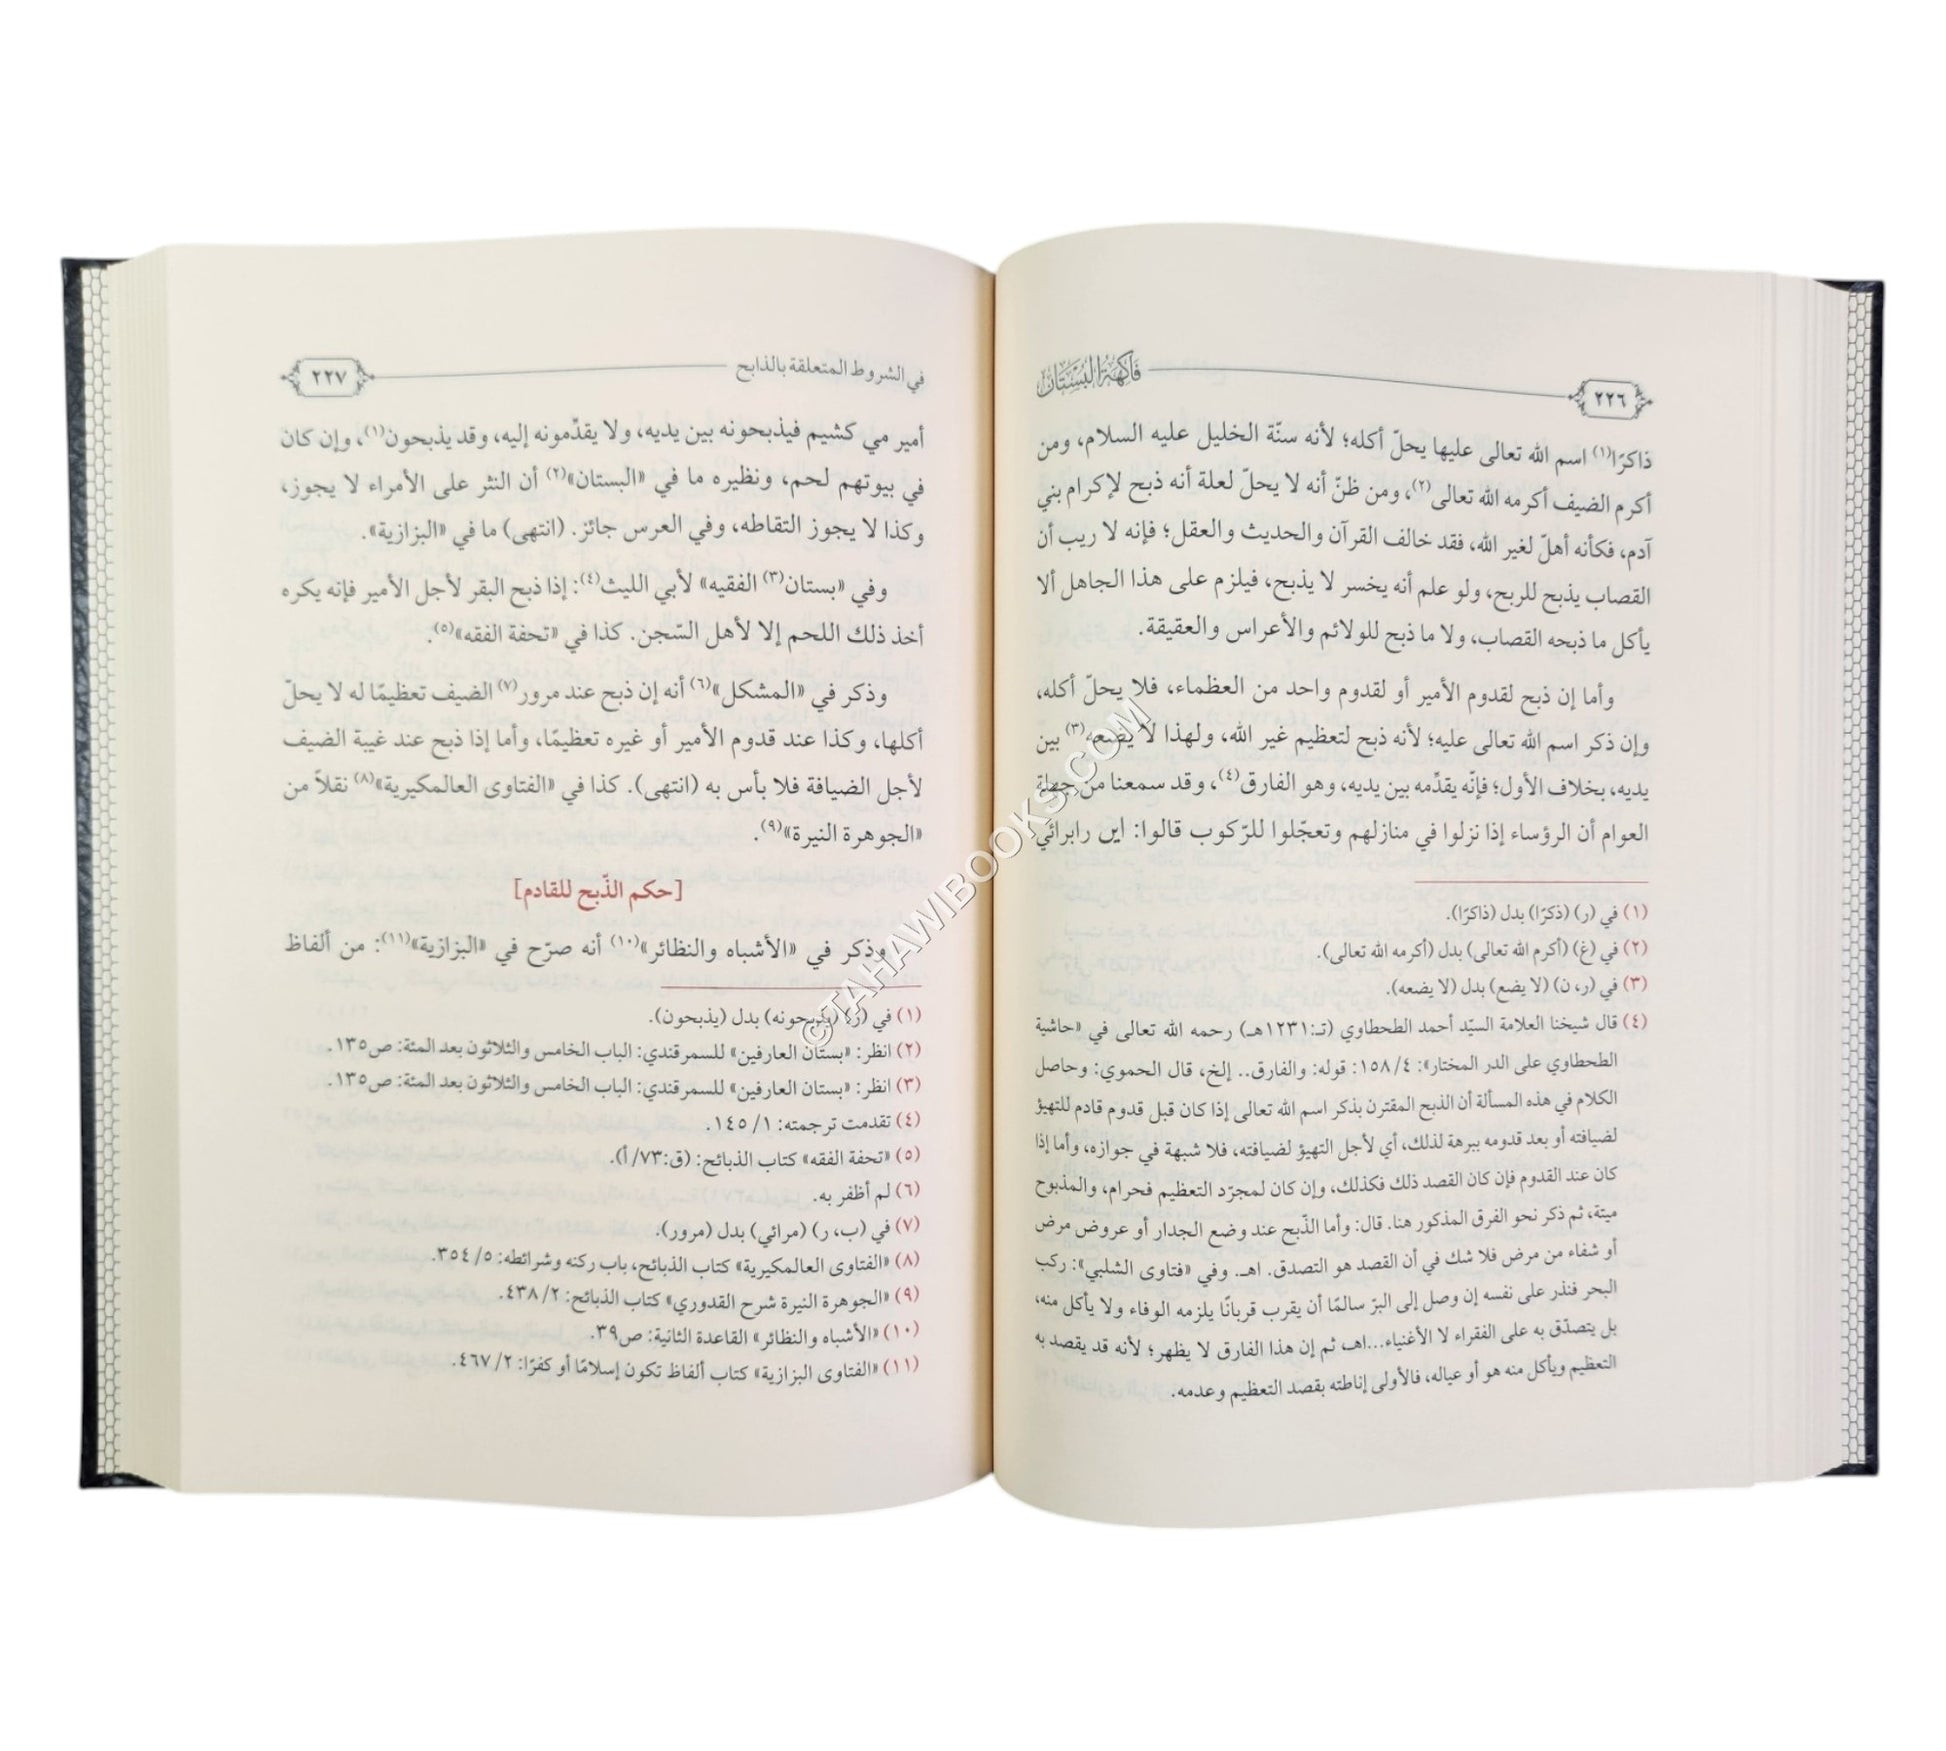 ٢٢٦
فَاكِهَةُ البُسْتَان
ذاكرًا(١) اسم الله تعالى عليها يحلّ أكله؛ لأنه سنّة الخليل عليه السلام، ومن
أكرم الضيف أكرمه الله تعالى(٢)، ومن ظنّ أنه لا يحلّ لعلة أنه ذبح لإكرام بني
آدم، فكأنه أهلّ لغير الله، فقد خالف القرآن والحديث والعقل؛ فإنه لا ريب أن
القصاب يذبح للربح، ولو علم أنه يخسر لا يذبح، فيلزم على هذا الجاهل ألا
يأكل ما ذبحه القصاب، ولا ما ذبح للولائم والأعراس والعقيقة.
وأما إن ذبح لقدوم الأمير أو لقدوم واحد من العظماء، فلا يحلّ أكله،
وإن ذكر اسم الله تعالى عليه؛ لأنه ذبح لتعظيم غير الله، ولهذا لا يضعه(٣) بين
يديه، بخلاف الأول؛ فإنّه يقدِّمه بين يديه، وهو الفارق(٤)، وقد سمعنا من جهلة
العوام أن الرؤساء إذا نزلوا في منازلهم وتعجّلوا للرّكوب قالوا: اين رابرائي
(١) في (ر) (ذكرًا) بدل (ذاكرًا).
(٢) في (غ) (أكرم الله تعالى) بدل (أكرمه الله تعالى).
(٣) في (ر، ن) (لا يضع) بدل (لا يضعه).
(٤) قال شيخنا العلامة السيّد أحمد الطحطاوي (تـ:١٢٣١هـ) رحمه الله تعالى في «حاشية
الطحطاوي على الدر المختار»: ٤/ ١٥٨: قوله: والفارق.. إلخ، قال الحموي: وحاصل
الكلام في هذه المسألة أن الذبح المقترن بذكر اسم الله تعالى إذا كان قبل قدوم قادم للتهيؤ
لضيافته أو بعد قدومه ببرهة لذلك، أي لأجل التهيؤ لضيافته، فلا شبهة في جوازه، وأما إذا
كان عند القدوم فإن كان القصد ذلك فكذلك، وإن كان لمجرّد التعظيم فحرام، والمذبوح
ميتة، ثم ذكر نحو الفرق المذكور هنا. قال: وأما الذّبح عند وضع الجدار أو عروض مرض
أو شفاء من مرض فلا شك في أن القصد هو التصدق. اهـ. وفي «فتاوى الشلبي»: ركب
البحر فنذر على نفسه إن وصل إلى البرّ سالمًا أن يقرب قربانًا يلزمه الوفاء ولا يأكل منه،
بل يتصدّق به على الفقراء لا الأغنياء...اهـ ثم إن هذا الفارق لا يظهر؛ لأنه قد يقصد به
التعظيم ويأكل منه هو أو عياله، فالأولى إناطته بقصد التعظيم وعدمه.
في الشروط المتعلقة بالذابح
٢٢٧
أمير مي كشيم فيذبحونه بين يديه، ولا يقدِّمونه إليه، وقد يذبحون(١)، وإن كان
في بيوتهم لحم، ونظيره ما في «البستان»(٢) أن النثر على الأمراء لا يجوز،
وكذا لا يجوز التقاطه، وفي العرس جائز. (انتهى) ما في «البزازية».
وفي «بستان(٣) الفقيه» لأبي الليث(٤): إذا ذبح البقر لأجل الأمير فإنه يكره
أخذ ذلك اللحم إلا لأهل السّجن. كذا في «تحفة الفقه»(٥).
وذكر في «المشكل»(٦) أنه إن ذبح عند مرور(٧) الضيف تعظيمًا له لا يحلّ
أكلها، وكذا عند قدوم الأمير أو غيره تعظيمًا، وأما إذا ذبح عند غيبة الضيف
لأجل الضيافة فلا بأس به (انتهى). كذا في «الفتاوى العالمكيرية»(٨) نقلاً من
«الجوهرة النيرة»(٩).
[حكم الذّبح للقادم]
وذكر في «الأشباه والنظائر»(١٠) أنه صرّح في «البزازية»(١١): من ألفاظ
(١) في (ر) (يذبحونه) بدل (يذبحون).
(٢) انظر: «بستان العارفين» للسمرقندي: الباب الخامس والثلاثون بعد المئة: ص١٣٥.
(٣) انظر: «بستان العارفين» للسمرقندي: الباب الخامس والثلاثون بعد المئة: ص١٣٥.
(٤) تقدمت ترجمته: ١/ ١٤٥.
(٥) «تحفة الفقه» كتاب الذبائح: (ق:٧٣/ أ).
(٦) لم أظفر به.
(٧) في (ب، ر) (مرائي) بدل (مرور).
(٨) «الفتاوى العالمكيرية» كتاب الذبائح، باب ركنه وشرائطه: ٥/ ٣٥٤.
(٩) «الجوهرة النيرة شرح القدوري» كتاب الذبائح: ٢/ ٤٣٨.
(١٠) «الأشباه والنظائر» القاعدة الثانية: ص٣٩.
(١١) «الفتاوى البزازية» كتاب ألفاظ تكون إسلامًا أو كفرًا: ٢/ ٤٦٧.
©TAHAWIBOOKS.COM